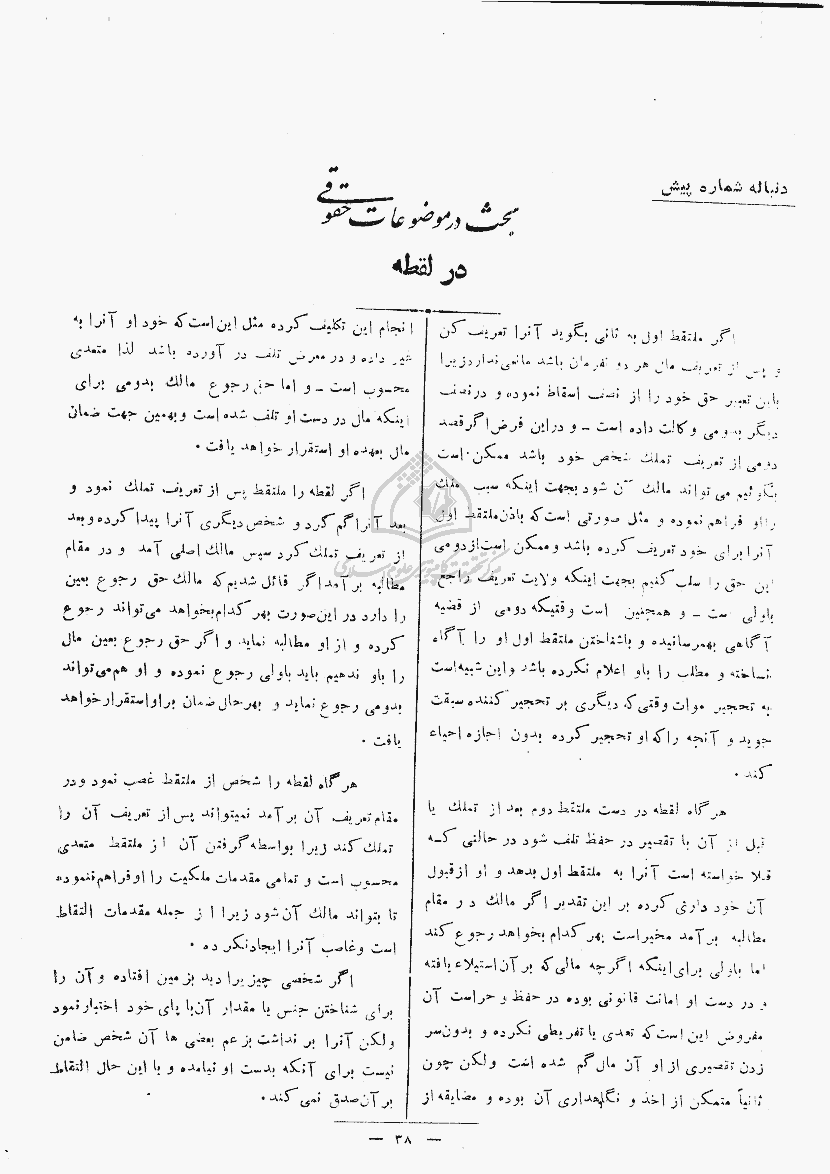 دنباله شماره پیش
مبحث در موضوعات حقوقی
در لقطه
اگر ملتقط اول به ثانی بگوید آنرا تعریف کن
و پس از تعریف مال هر دو نفرمان باشد مانعی ندارد زیرا
باین تعبیر حق خود را از نصف اسقاط نموده و در نصف
دیگر بدومی وکالت داده است - و در این فرض اگر قصد
دومی از تعریف تملک شخص خود باشد ممکن است
بگوئیم می تواند مالک آن شود بجهت اینکه سبب ملک
را او فراهم نموده و مثل صورتی است که باذن ملتقط اول
آنرا برای خود تعریف کرده باشد و ممکن است از دومی
این حق را سلب کنیم بجهت اینکه ولایت تعریف راجع
باولی است - و همچنین است وقتیکه دومی از قضیه
آگاهی بهمرسانیده و باشناختن ملتقط اول او را آگاه
نساخته و مطلب را باو اعلام نکرده باشد و این شبیه است
به تحجیر موات وقتی که دیگری بر تحجیر کننده سبقت
جوید و آنچه را که او تحجیر کرده بدون اجازه احیاء
کند .
هر گاه لقطه در دست ملتقط دوم بعد از تملك یا
قبل از آن با تقصیر در حفظ تلف شود در حالتی که
قبلا خواسته است آنرا به ملتقط اول بدهد و او از قبول
آن خود داری کرده بر این تقدیر اگر مالك در مقام
مطالبه بر آمد مخیر است بهر کدام بخواهد رجوع کند
اما باولی برای اینکه اگرچه مالی که بر آن استیلاء یافته
و در دست او امانت قانونی بوده در حفظ و حراست آن
مفروض این است که تعدی یا تفریطی نکرده و بدون سر
زدن تقصیری از او آن مال گم شده است ولکن چون
ثانیاً متمکن از اخذ و نگاهداری آن بوده و مضایقه از
انجام این تکلیف کرده مثل این است که خود او آنرا به
غیر داده و در معرض تلف در آورده باشد لذا متعدی
محسوب است - و اما حق رجوع مالك بدومی برای
اینکه مال در دست او تلف شده است و بهمین جهت ضمان
مال بعهده او استقرار خواهد یافت .
اگر لقطه را ملتقط پس از تعریف تملك نمود و
بعد آنرا گم کرد و شخص دیگری آنرا پیدا کرده و بعد
از تعریف تملك کرد سپس مالك اصلی آمد و در مقام
مطالبه بر آمد اگر قائل شدیم که مالك حق رجوع بعین
را دارد در این صورت بهر کدام بخواهد می تواند رجوع
کرده و از او مطالبه نماید و اگر حق رجوع بعین مال
را باو ندهیم باید باولی رجوع نموده و او هم می تواند
بدومی رجوع نماید و بهر حال ضمان بر او استقرار خواهد
یافت .
هر گاه لقطه را شخص از ملتقط غصب نمود و در
مقام تعریف آن بر آمد نمیتواند پس از تعریف آن را
تملك کند زیرا بواسطه گرفتن آن از ملتقط متعدی
محسوب است و تمامی مقدمات ملکیت را او فراهم ننموده
تا بتواند مالك آن شود زیرا از جمله مقدمات التقاط
است و غاصب آنرا ایجاد نکرده .
اگر شخصی چیزیرا دید بزمین افتاده و آن را
برای شناختن جنس یا مقدار آن با پای خود اختیار نمود
ولکن آنرا بر نداشت بزعم بعضی ها آن شخص ضامن
نیست برای آنکه بدست او نیامده و با این حال التقاط
بر آن صدق نمی کند .
— ۳۸ —